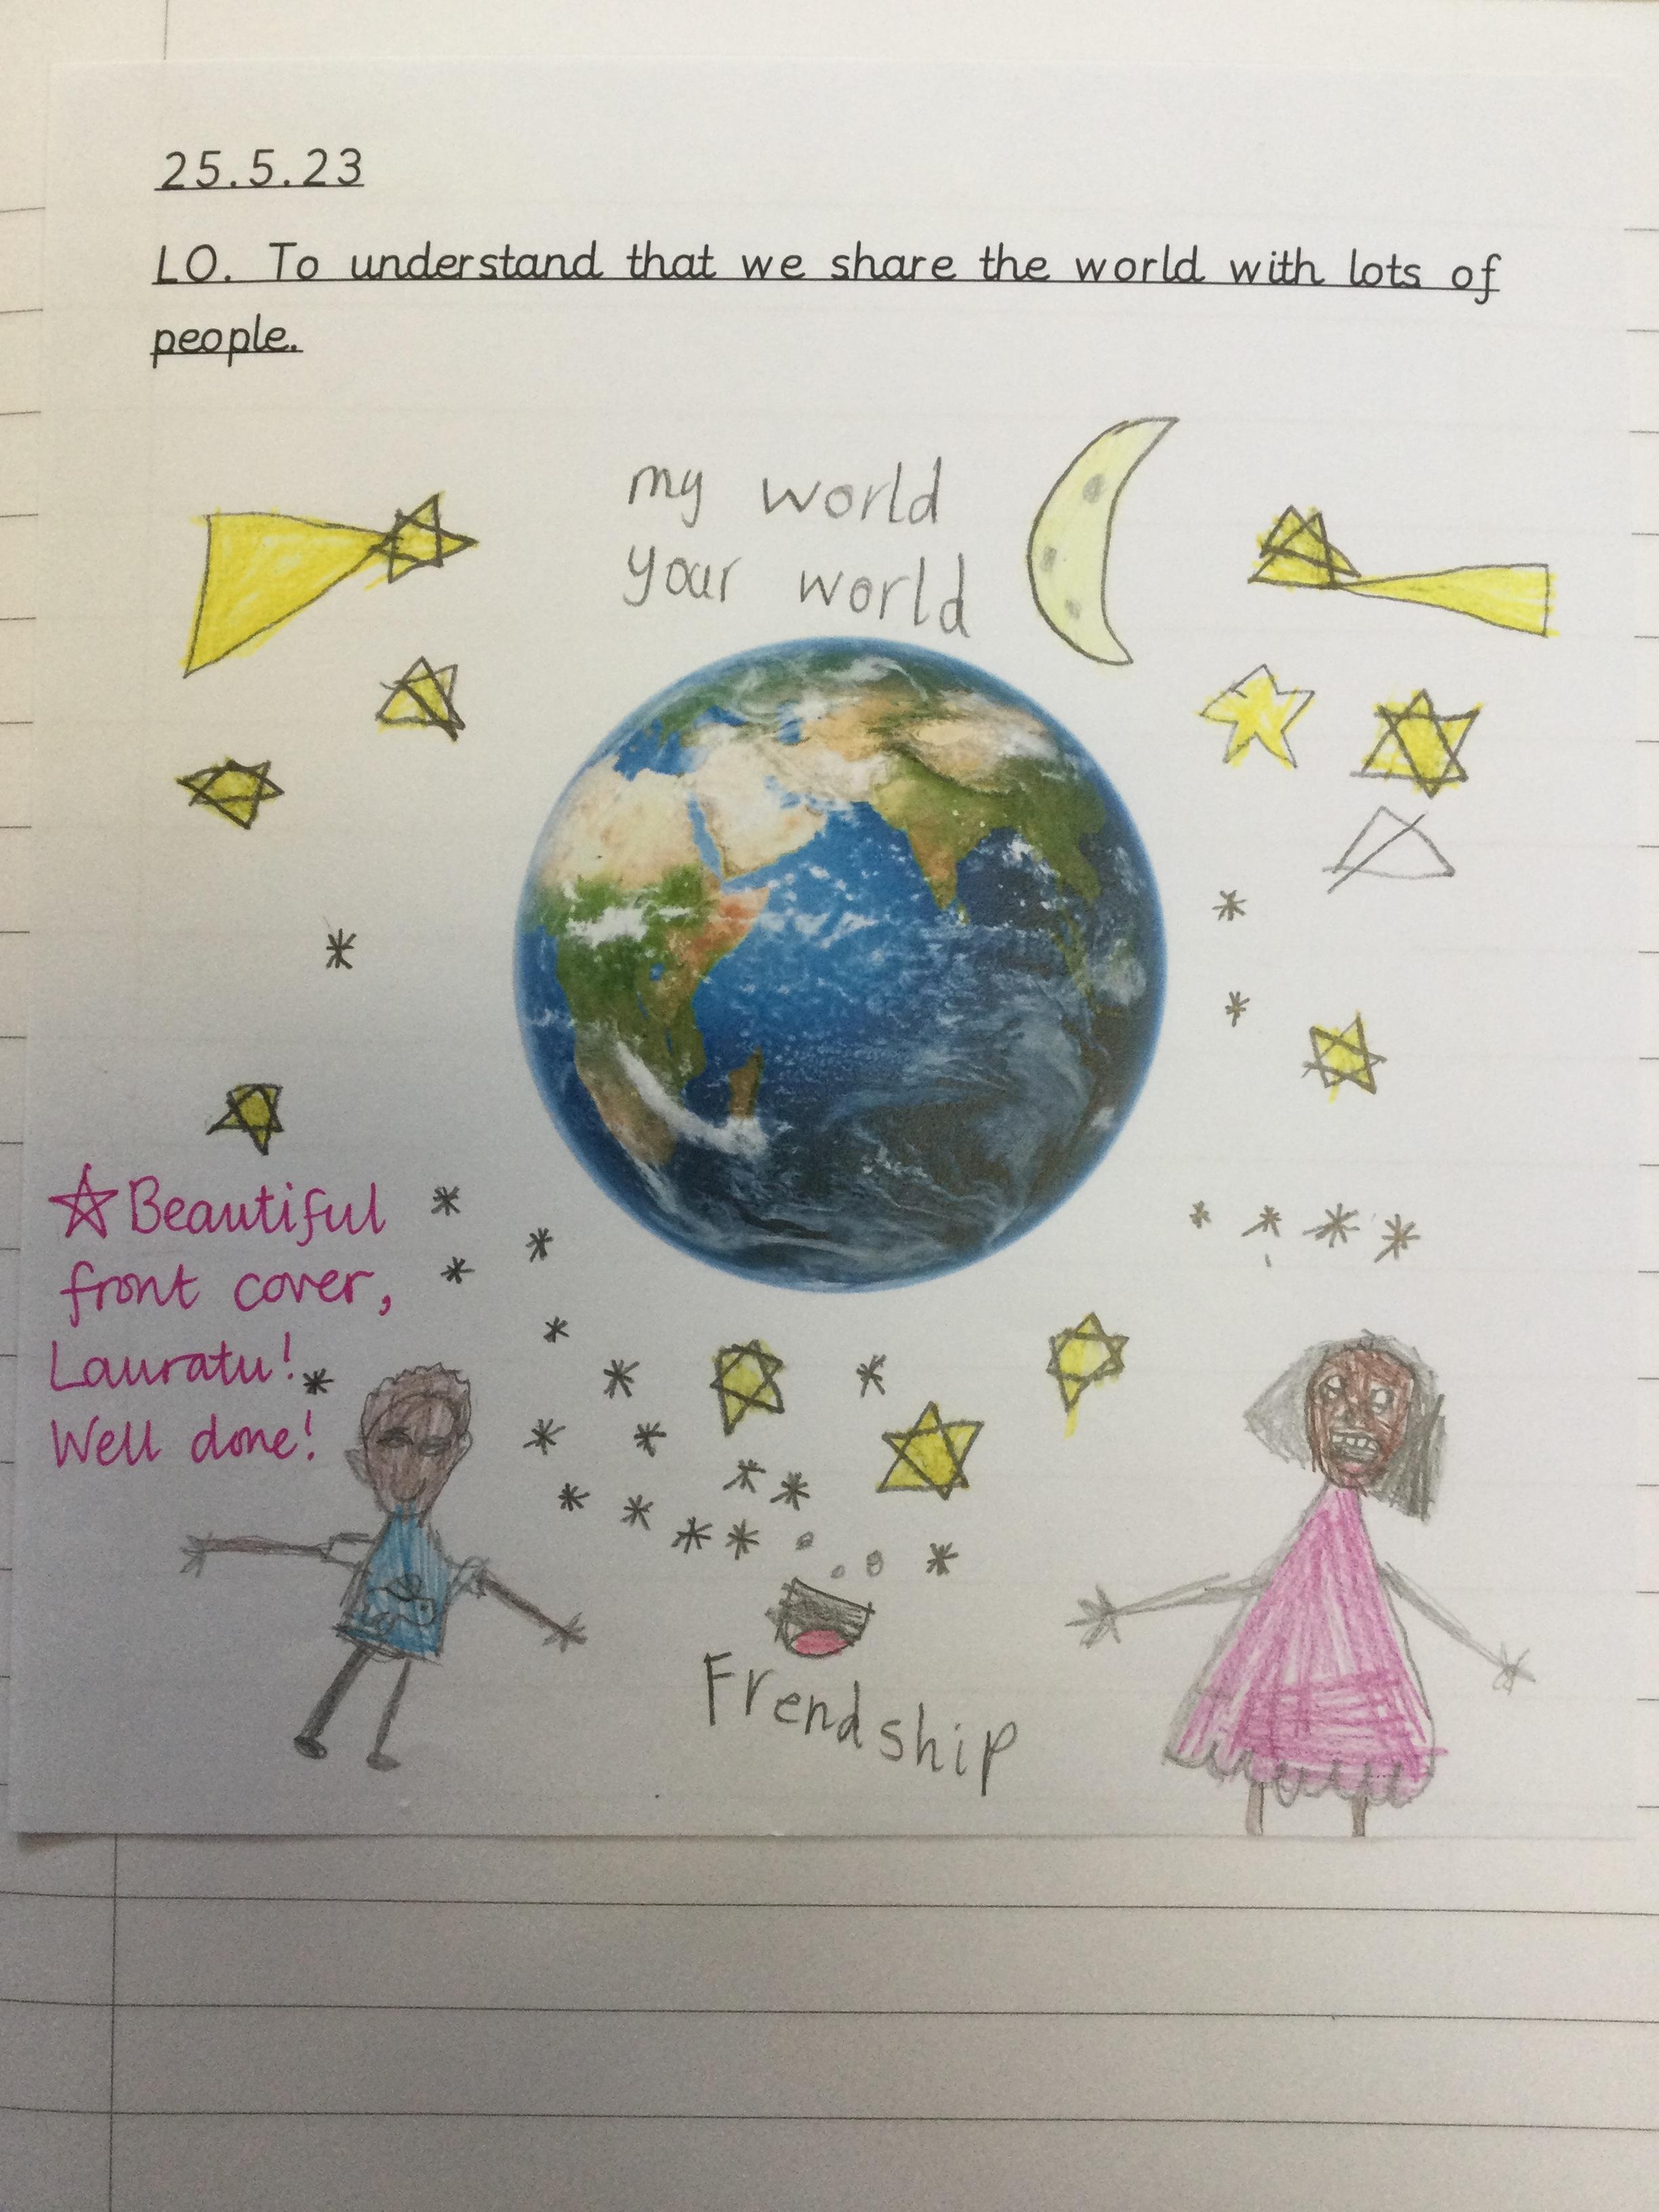 25.5.23
LO. To understand that we share the world with lots of
people.
my world
your world
Beautiful
front cover,
Lauratu!
Well done!
Frendship